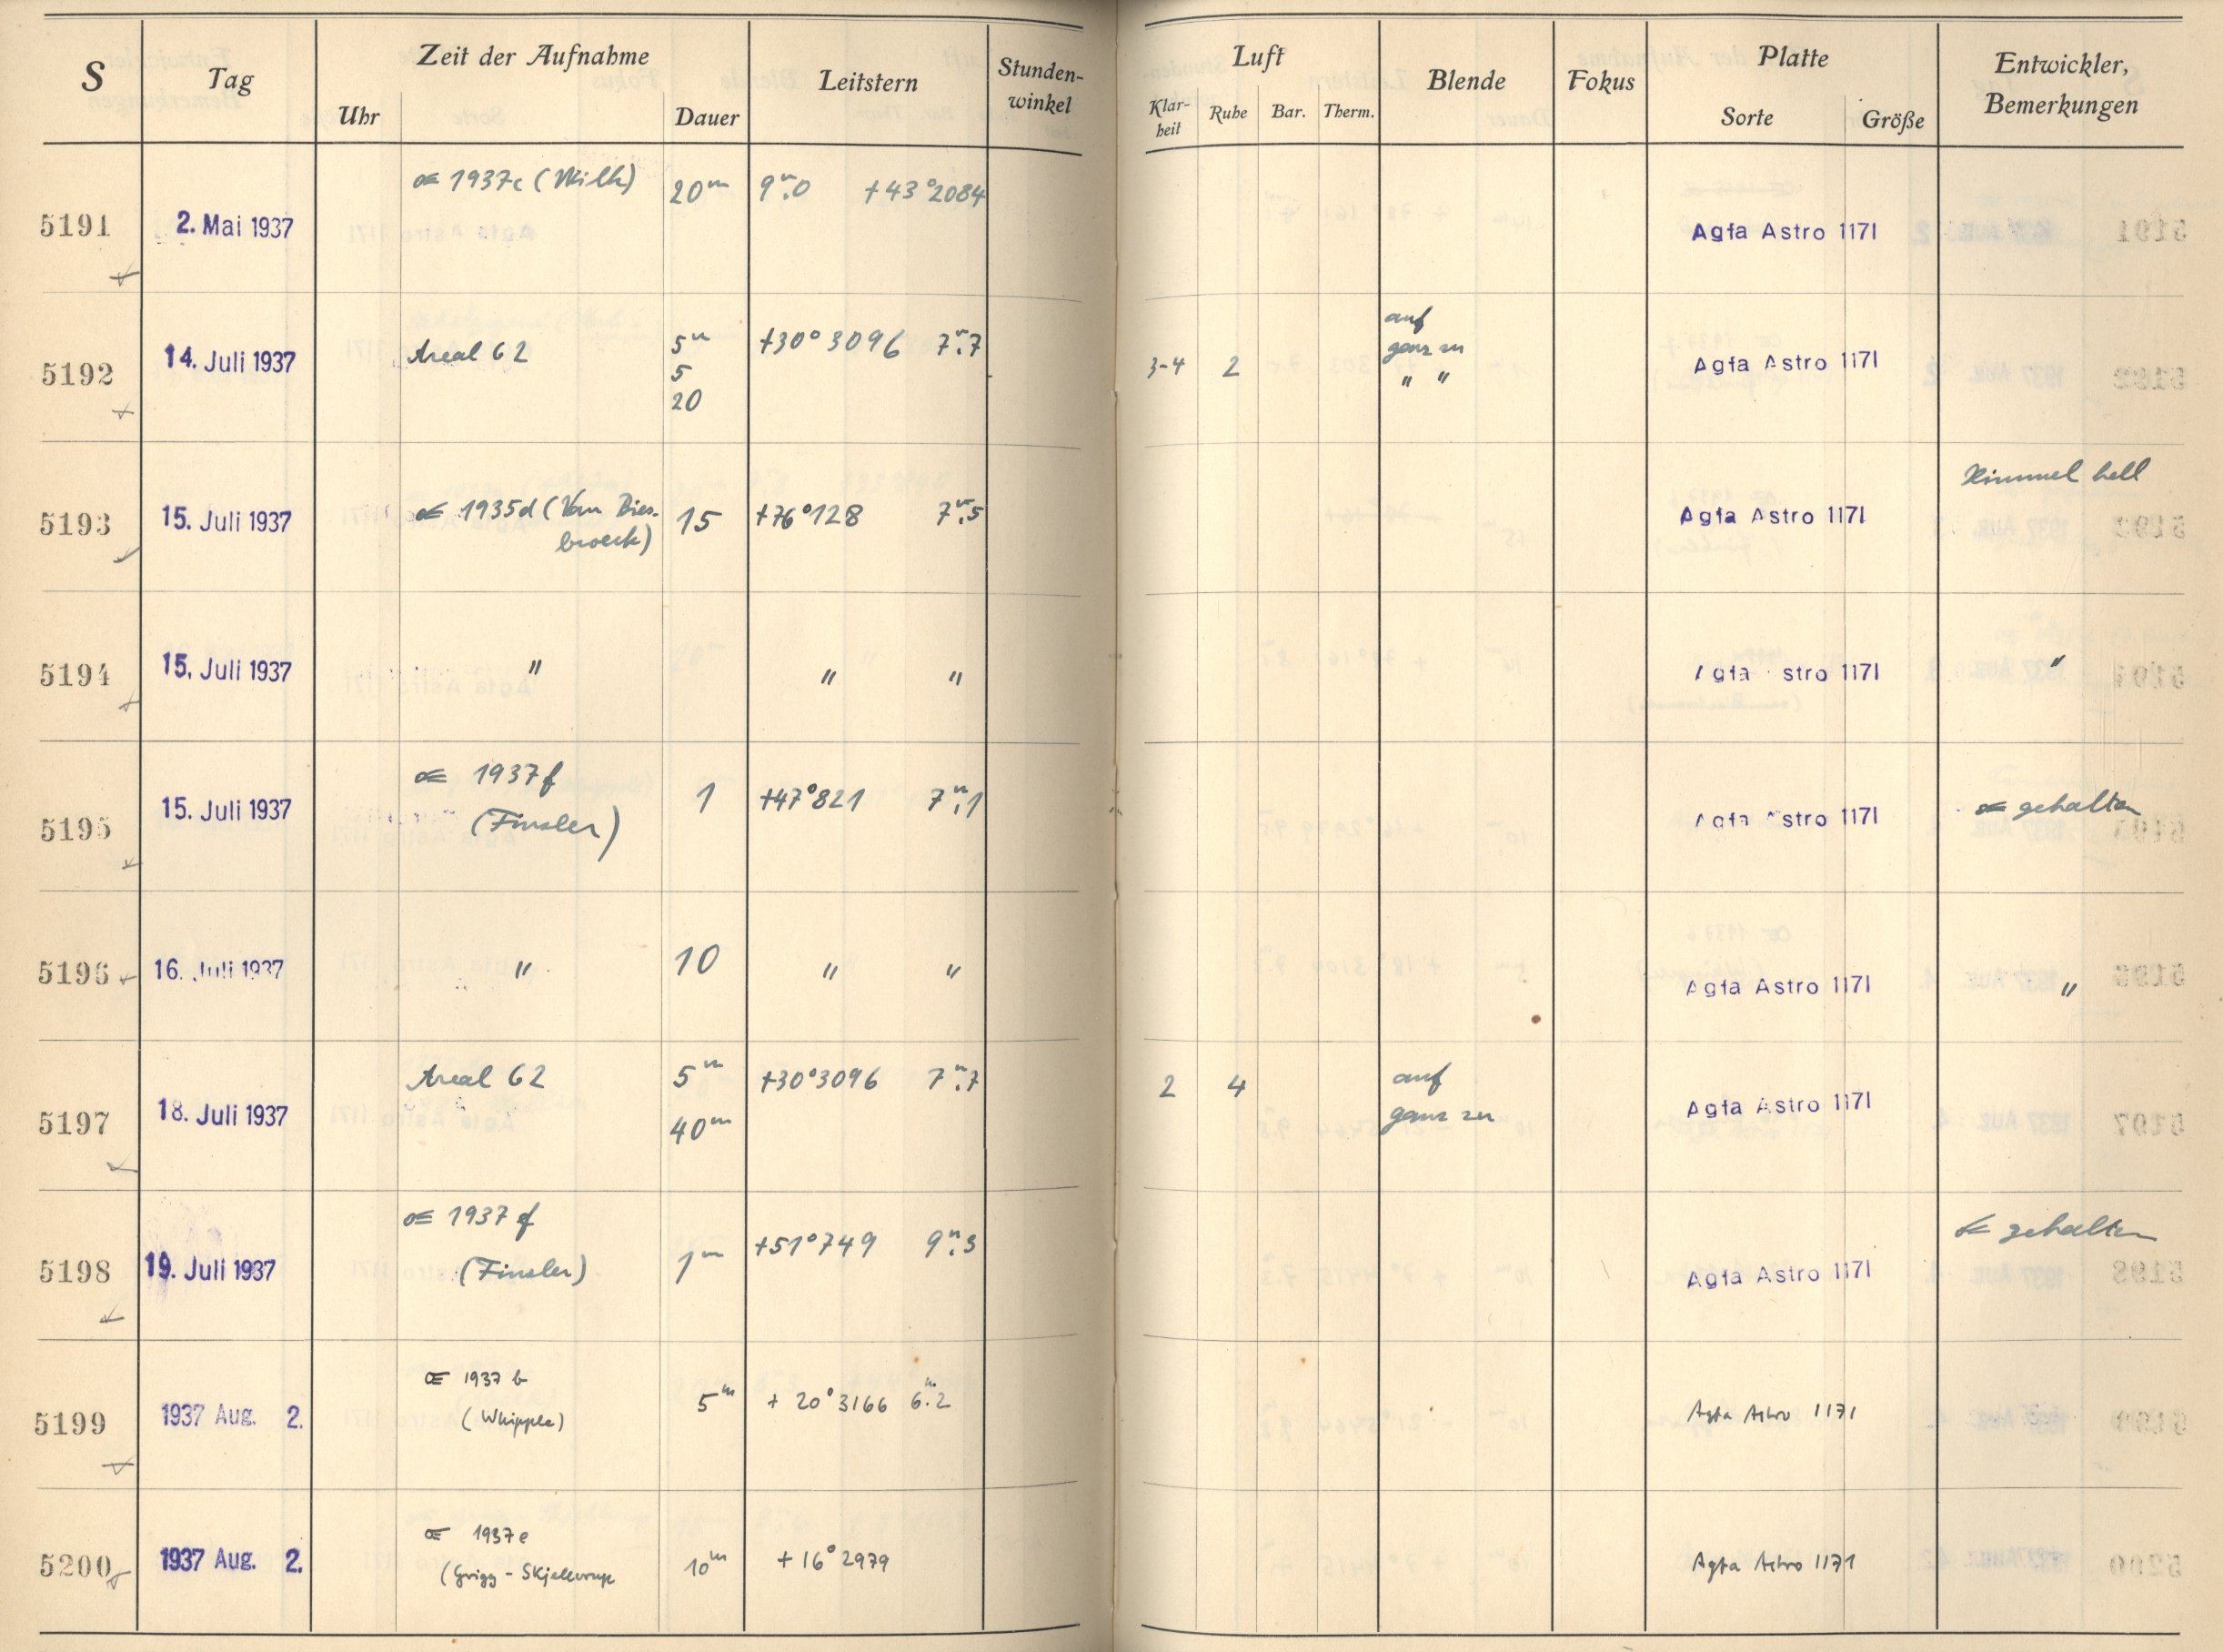 S Tag Zeit der Aufnahme Leitstern Stunden-winkel Luft Blende Fokus Platte Entwickler, Bemerkungen
Uhr Dauer Klar-heit Ruhe Bar. Therm. Sorte Größe
5191 2. Mai 1937 ☄ 1937c (Wilk) 20m 9m.0 +43°2084 Agfa Astro 1171
5192 14. Juli 1937 Areal 62 5m +30°3096 7m.7 3-4 2 auf Agfa Astro 1171
5 ganz zu
20 " "
5193 15. Juli 1937 ☄ 1935d (Van Bies- 15 +76°128 7m.5 Agfa Astro 1171 Himmel hell
broeck)
5194 15. Juli 1937 " " " Agfa Astro 1171 "
5195 15. Juli 1937 ☄ 1937f 1 +47°821 7m.1 Agfa Astro 1171 ☄ gehalten
(Finsler)
5196 16. Juli 1937 " 10 " " Agfa Astro 1171 "
5197 18. Juli 1937 Areal 62 5m +30°3096 7m.7 2 4 auf Agfa Astro 1171
40m ganz zu
5198 19. Juli 1937 ☄ 1937f 1m +51°749 9m.3 Agfa Astro 1171 ☄ gehalten
(Finsler)
5199 1937 Aug. 2. ☄ 1937 b 5m +20°3166 6m.2 Agfa Astro 1171
(Whipple)
5200 1937 Aug. 2. ☄ 1937e 10m +16°2979 Agfa Astro 1171
(Grigg - Skjellerup